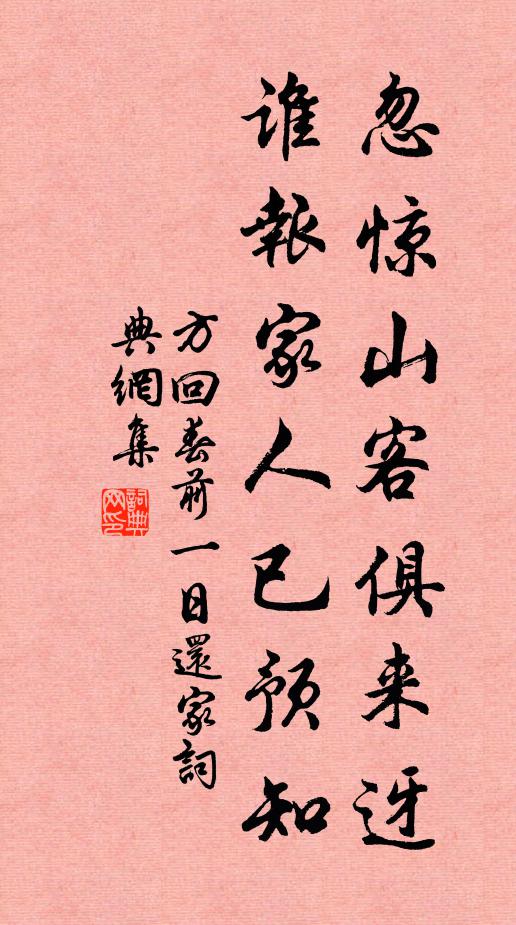 忽惊山客俱来迓
誰報家人已预知
方回春前一日還家詞
典網集
詞典网印